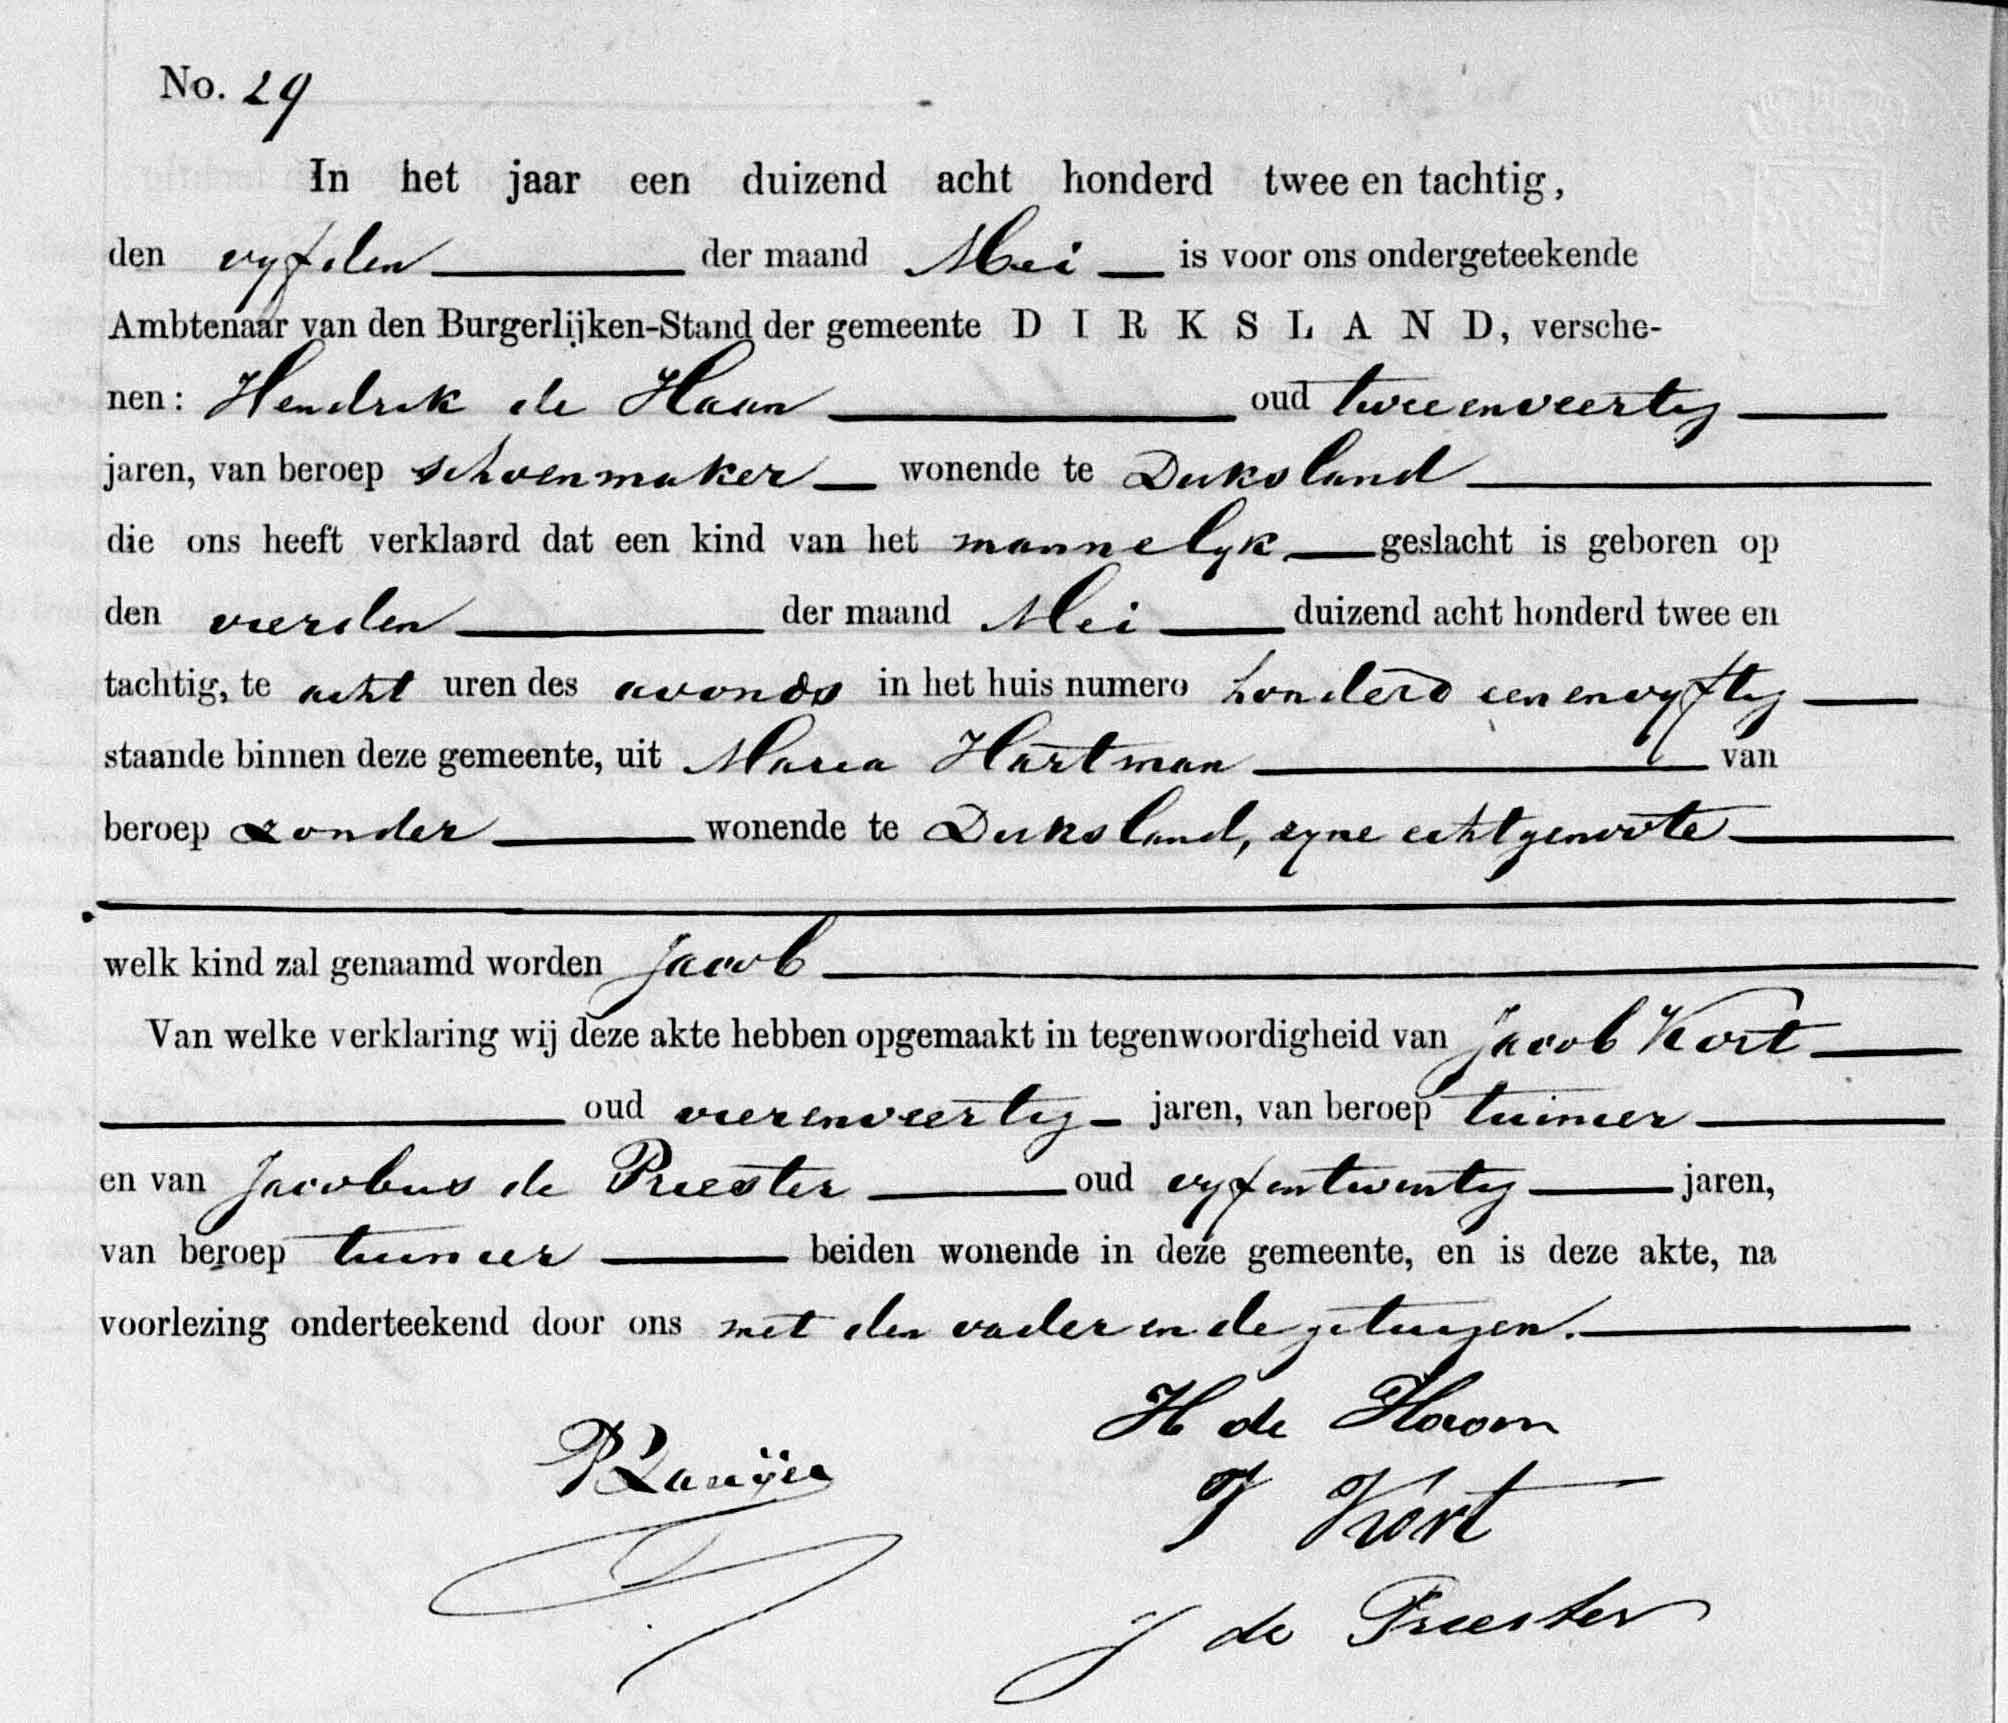 No. 29
In het jaar een duizend acht honderd twee en tachtig,
den vyfden der maand Mei is voor ons ondergeteekende
Ambtenaar van den Burgerlijken-Stand der gemeente DIRKSLAND, versche-
nen: Hendrik de Haan oud tweeenveertig
jaren, van beroep schoenmaker wonende te Dirksland
die ons heeft verklaard dat een kind van het mannelyk geslacht is geboren op
den vierden der maand Mei duizend acht honderd twee en
tachtig, te acht uren des avonds in het huis numero honderd eenenvyftig
staande binnen deze gemeente, uit Maria Hartman van
beroep zonder wonende te Dirksland, zyne echtgenoote
welk kind zal genaamd worden Jacob
Van welke verklaring wij deze akte hebben opgemaakt in tegenwoordigheid van Jacob Kort
oud vierenveertig jaren, van beroep tuinier
en van Jacobus de Preester oud vyfentwintig jaren,
van beroep tuinier beiden wonende in deze gemeente, en is deze akte, na
voorlezing onderteekend door ons met den vader en de getuigen.
H de Haan
J Kort
J de Preester